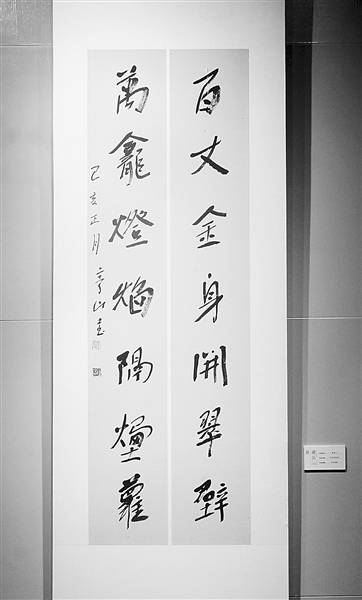 百丈金身開翠壁
萬龕燈焰隔煙蘿
己亥正月